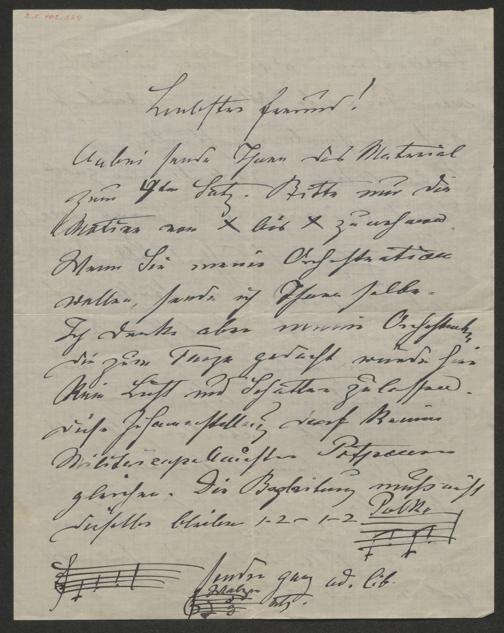 Liebster Freund!
Anbei sende Ihnen das Material
zum 4ten Satz. Bitte nur die
Motive von X bis X zu nehmen.
Wenn Sie meine Orchestration
wollen, sende ich Ihnen selbe.
Ich denke aber meine Orchestration,
die zum Tanze gedacht, würde hier
kein Licht und Schatten zulassen.
Diese Zusammenstellung darf keinem
Militärcapellmeister Potpourri
gleichen. Die Begleitung muß nicht
dieselbe bleiben 1-2-1-2 Polka
sondern ganz ad. lib.
Walzer
3 etz.